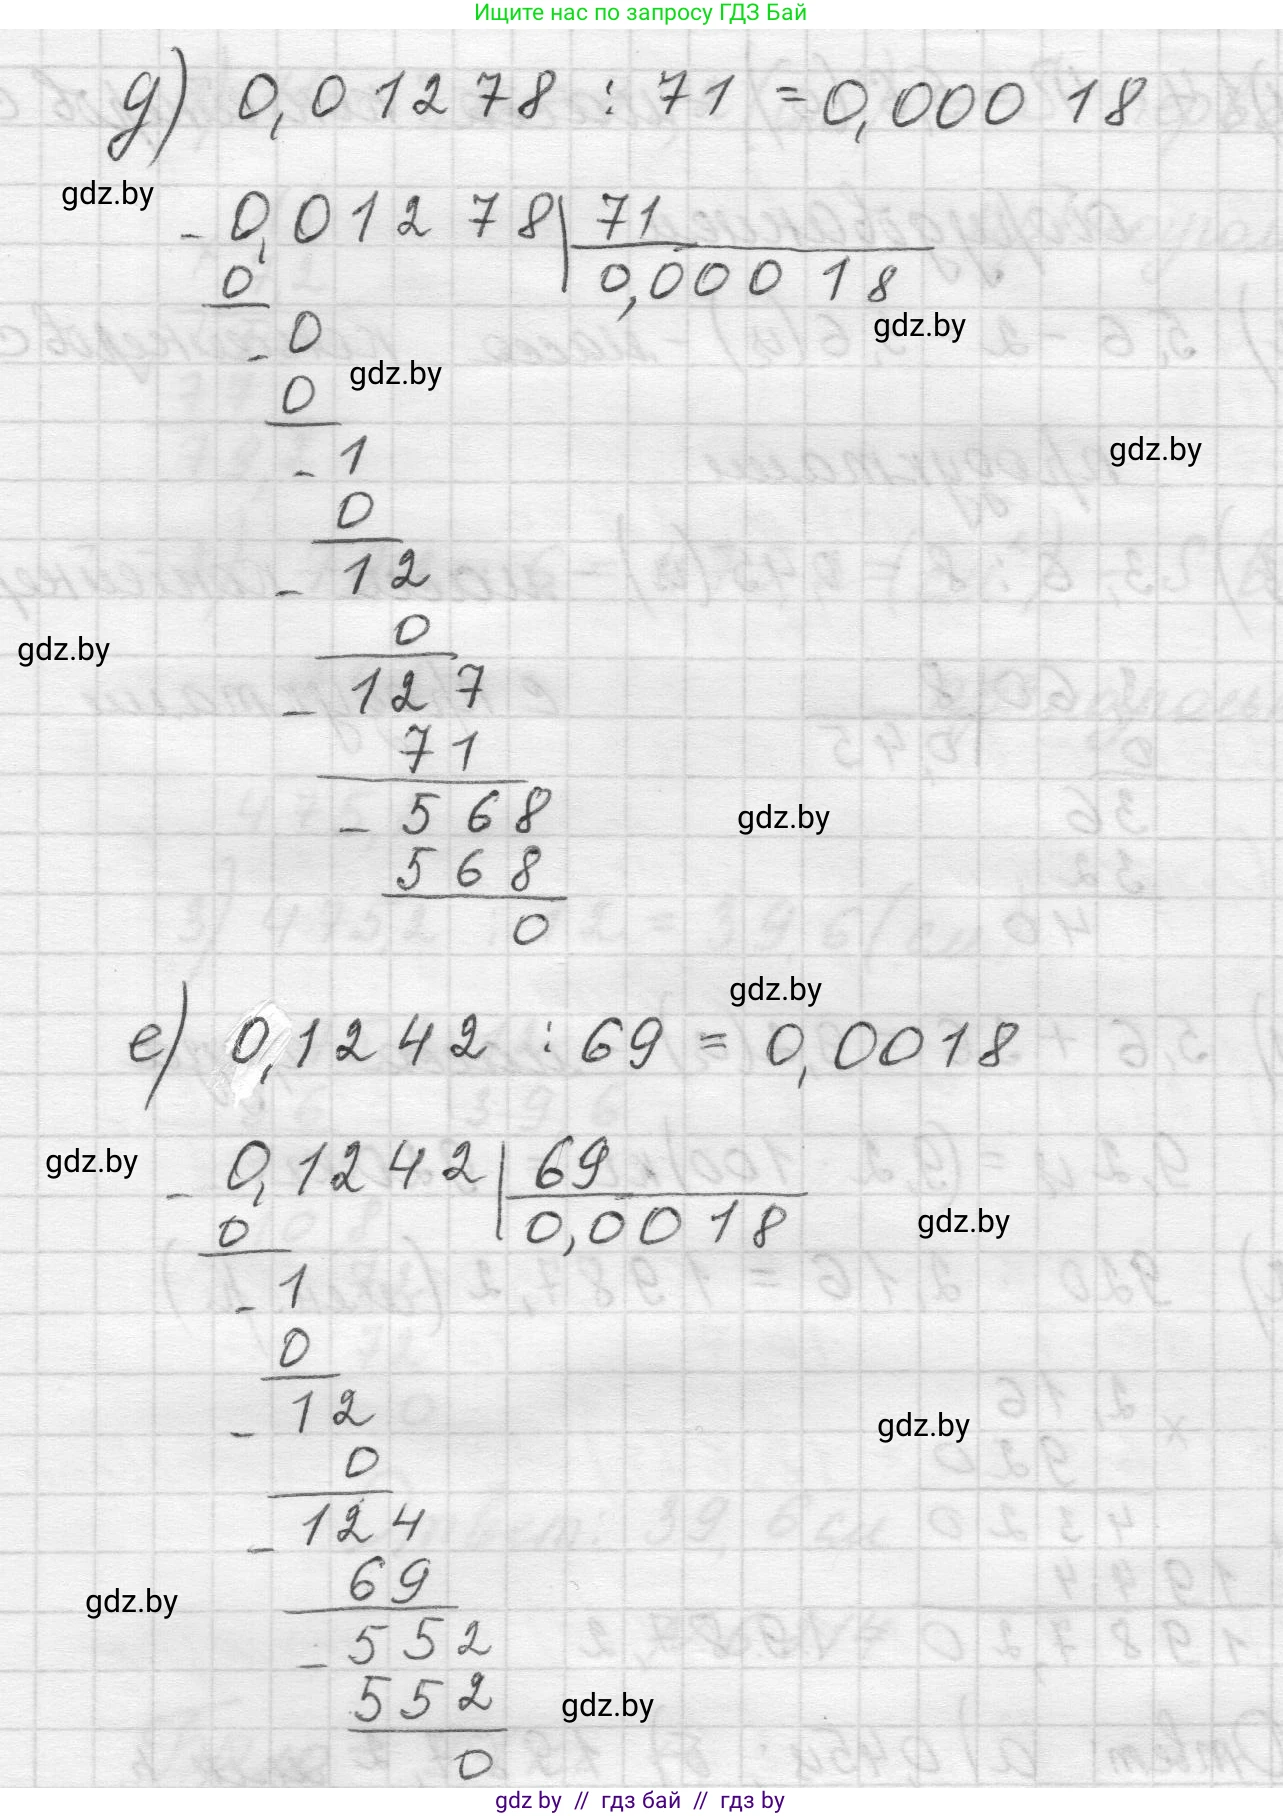 Ищите нас по запросу ГДЗ Бай
д) 0,01278 : 71 = 0,00018
gdz.by
- 0,01278 | 71
0 0,00018
gdz.by
- 0
gdz.by
0
- 1
gdz.by
0
- 12
0
gdz.by
- 127
71
- 568
gdz.by
568
0
gdz.by
е) 0,1242 : 69 = 0,0018
gdz.by
- 0,1242 | 69
0 0,0018
gdz.by
- 1
0
- 12
gdz.by
0
- 124
69
gdz.by
- 552
552
gdz.by
0
gdz by // гдз бай // гдз by